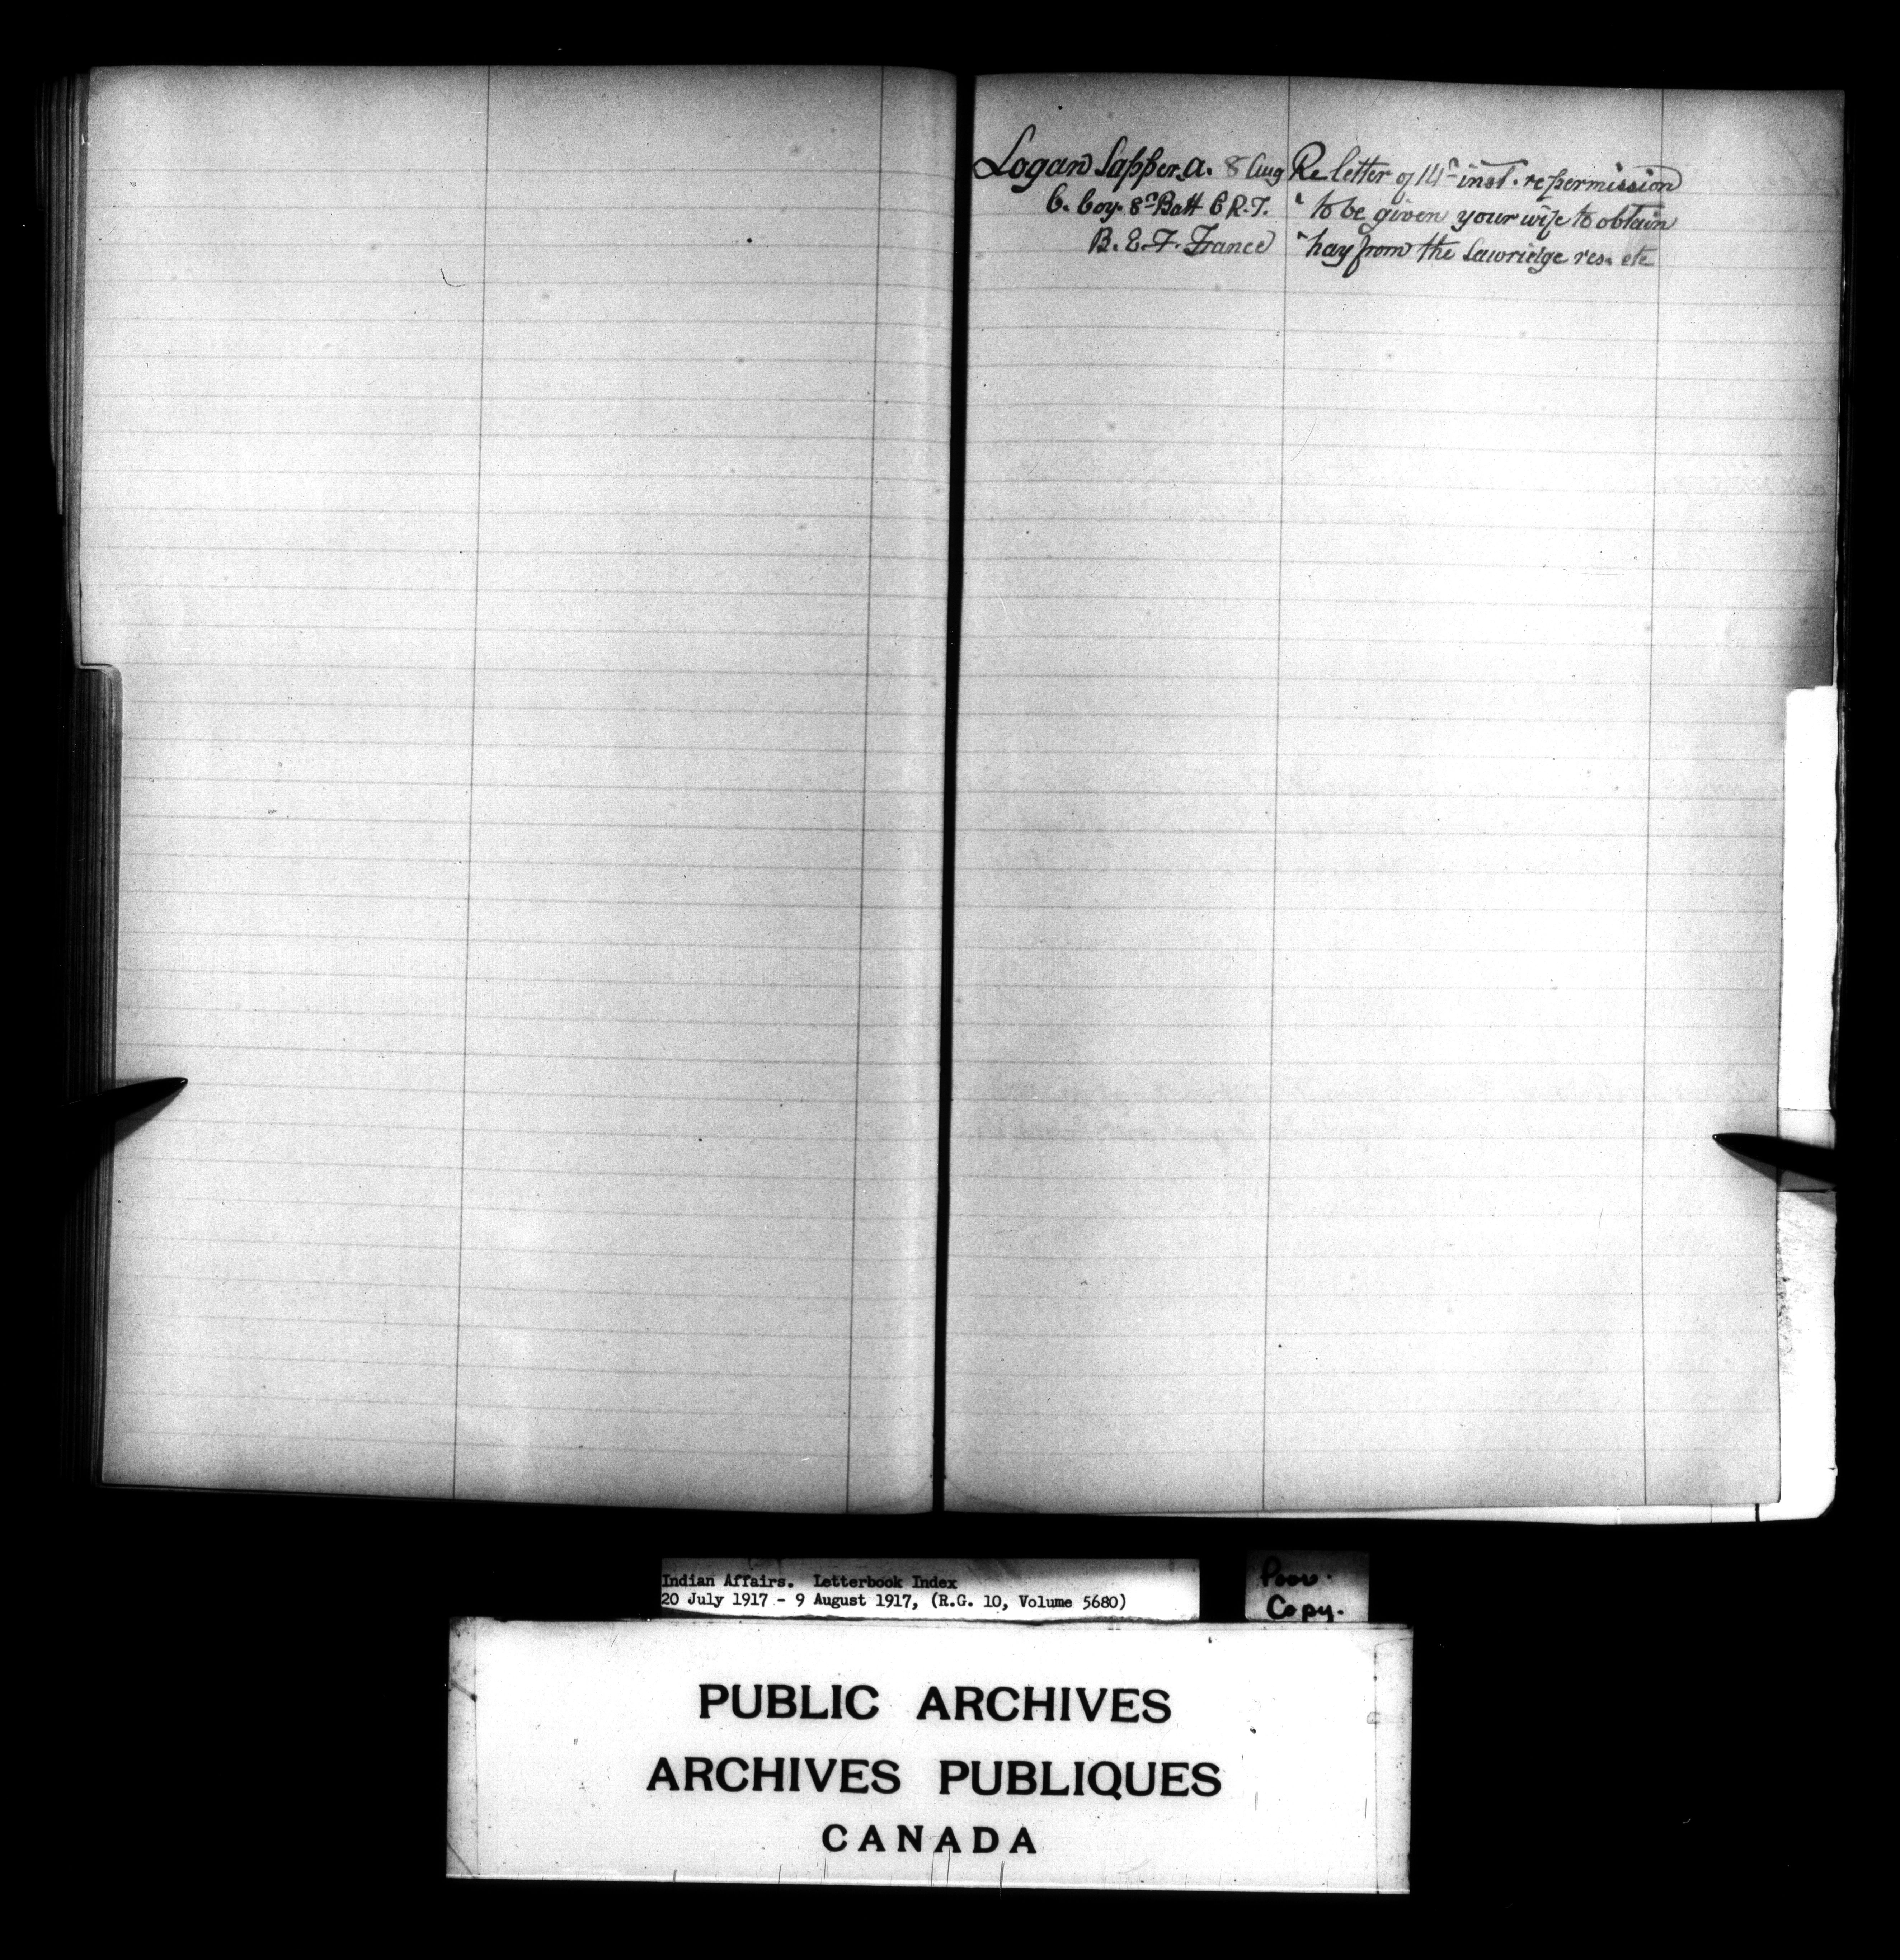 Logan Sapper A. 8 Aug Re letter of 14th inst. re permission
C. Coy. 8th Batt C R.T. " to be given your wife to obtain
B. E. F. France " hay from the Sawridge res. etc
Indian Affairs. Letterbook Index
20 July 1917 - 9 August 1917, (R.G. 10, Volume 5680)
Poor.
Copy.
PUBLIC ARCHIVES
ARCHIVES PUBLIQUES
CANADA